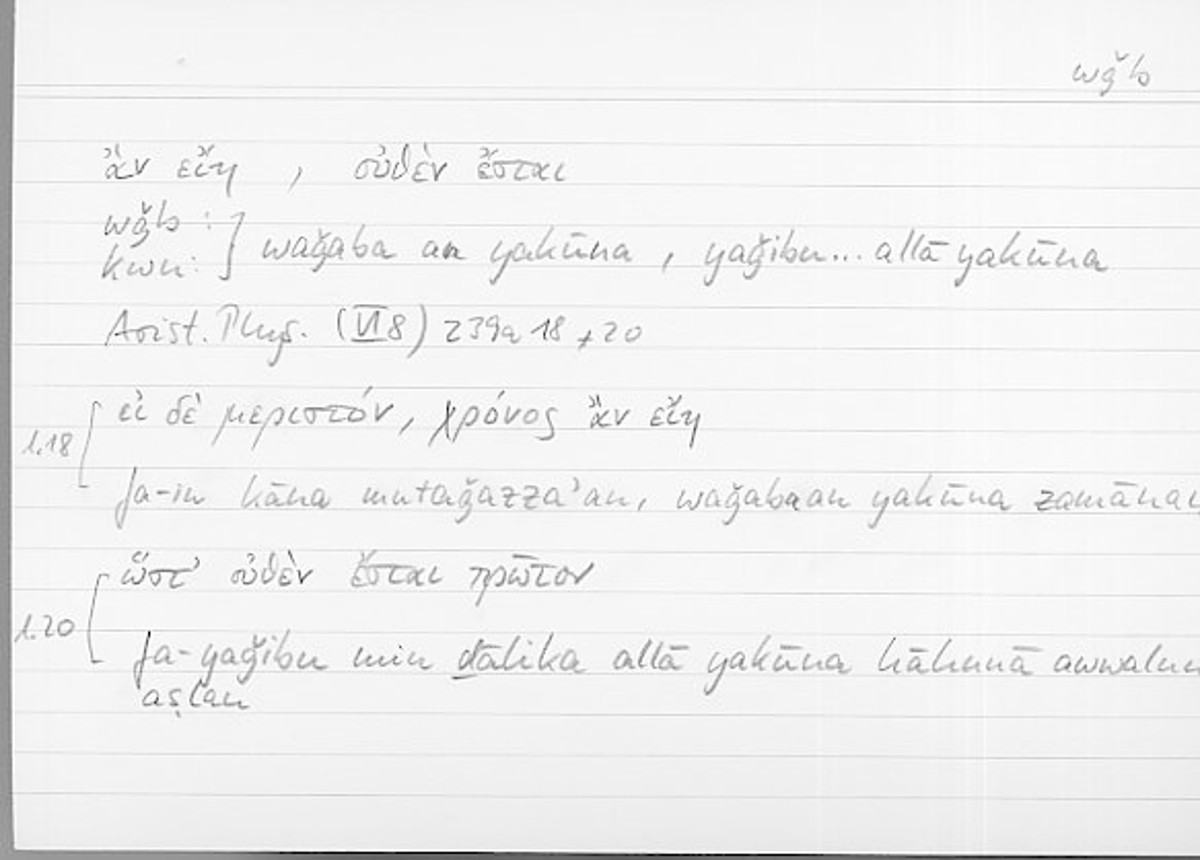 wǧb
ἂν εἴη , οὐθὲν ἔσται
wǧb :
kwn: } waǧaba an yakūna , yaǧibu... allā yakūna
Arist. Phys. (VI 8) 239a 18 + 20
l. 18 εἰ δὲ μεριστόν, χρόνος ἂν εἴη
fa-in kāna mutaǧazza'an, waǧaba an yakūna zamānan
l. 20 ὥστ' οὐθὲν ἔσται πρῶτον
fa-yaǧibu min ḏālika allā yakūna hāhunā awwalun
aṣlan